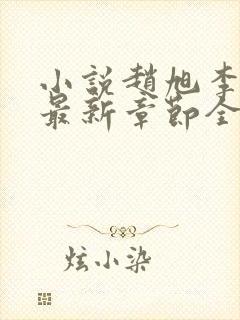 小説趙旭李
最新章節全
炫小染